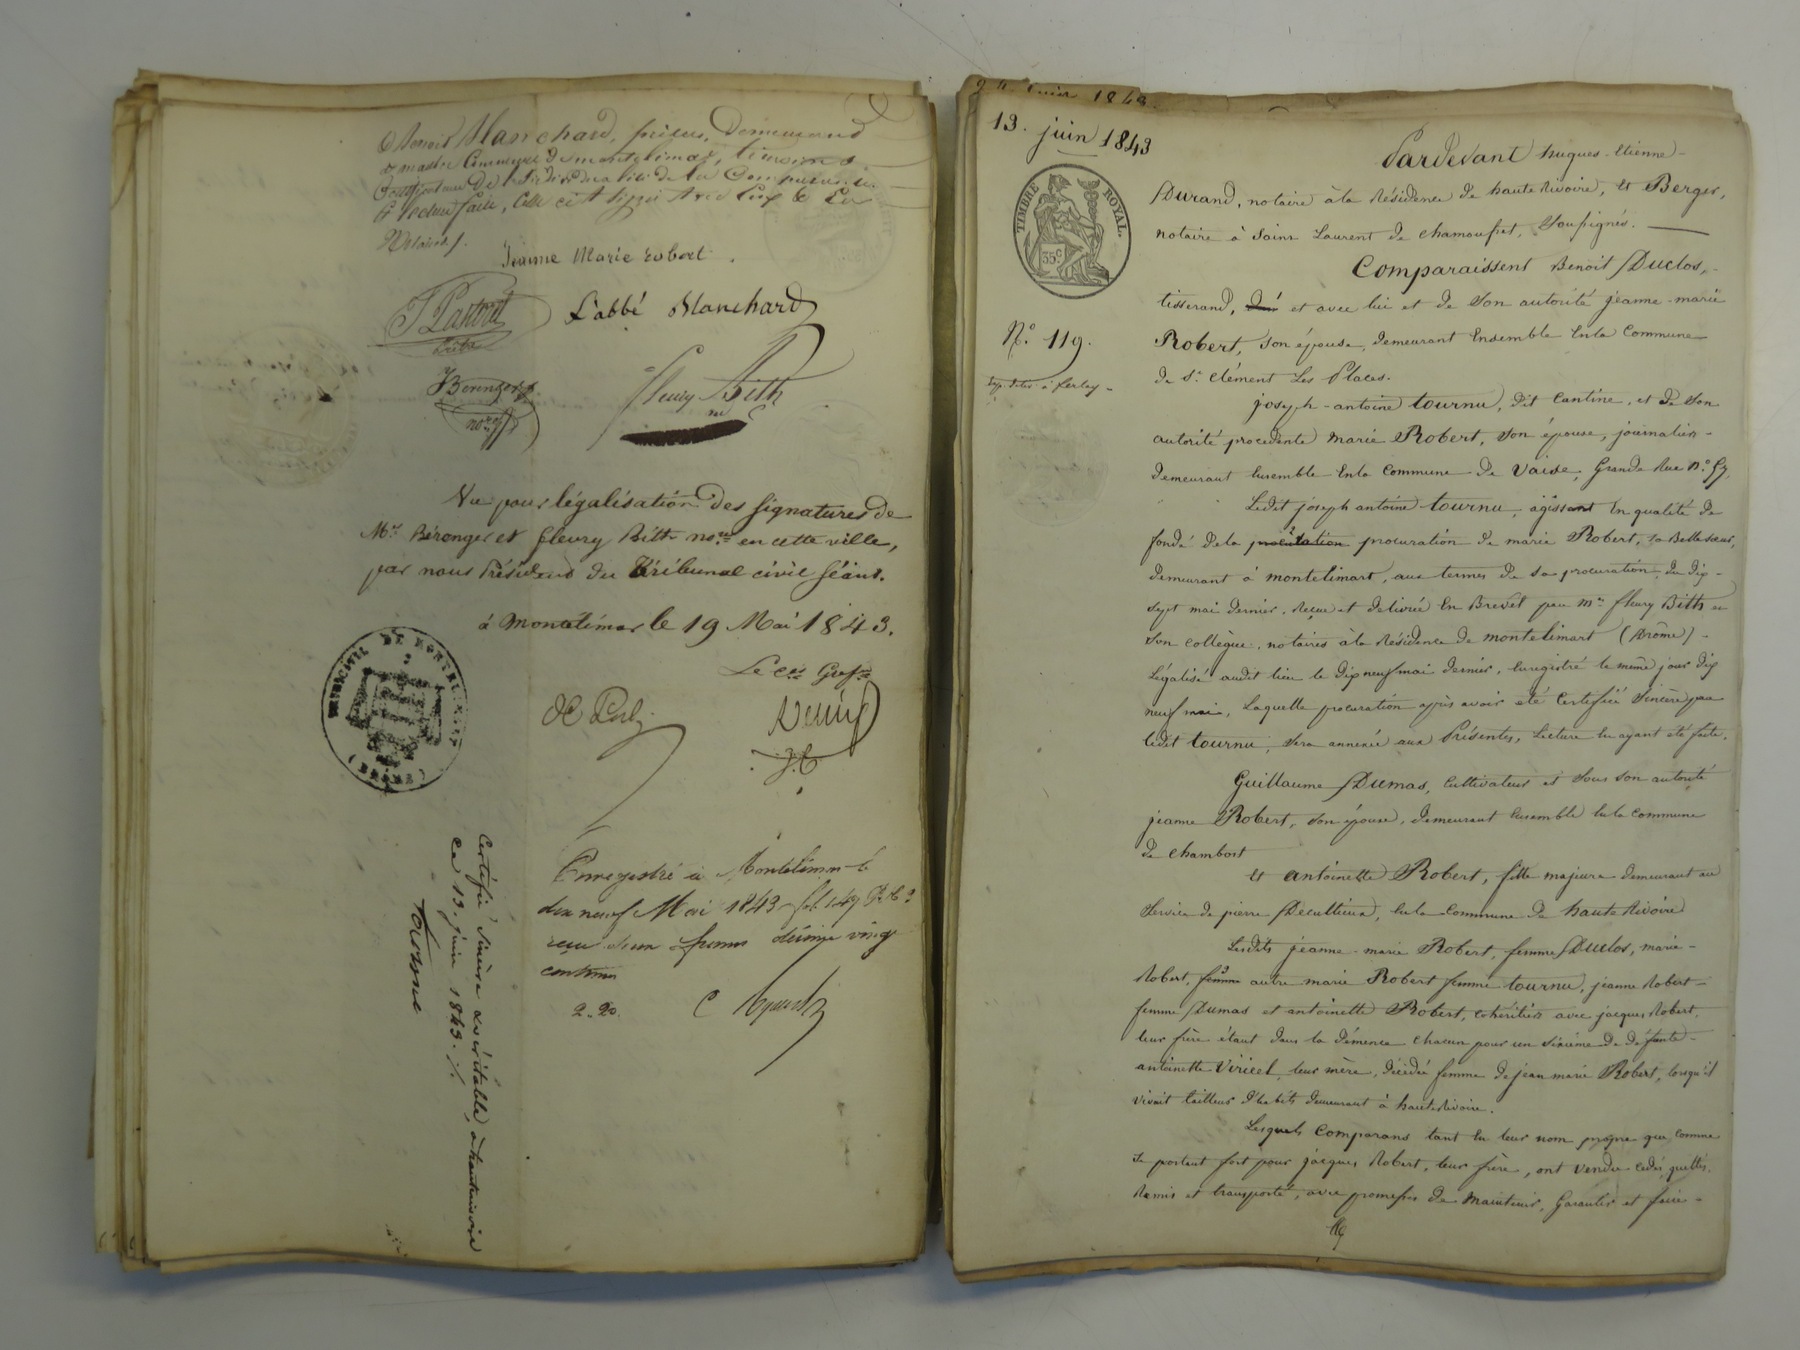 Benoit Blanchard, prêtres, Demeurand
Commune de montelimar, témoins
de l'individualité de la Comparante
Et lecture faite, Elle a signé avec Eux & Les
Notaires.
Jeanne Marie robert.
J Pastoret
prêtre
L'abbé Blanchard
Berenger
nore
fleury Bith
Vu pour légalisation des signatures de
Mes Béranger et fleury Bith nores en cette ville,
par nous Président du Tribunal civil séant.
à Montélimar le 19 Mai 1843.
Le cis Greff
TRIBUNAL CIVIL DE MONTELIMART
(DROME)
Enregistré à Montélimar le
dix neuf Mai 1843 fol. 149
reçu deux francs décime vingt
centimes
2-20.
Certifié sincère & véritable, à hauterivoire
Ce 13. juin 1843. /.
tourne
1843.
13. juin 1843
TIMBRE ROYAL.
35c
No. 119.
Pardevant hugues-Etienne-
Durand, notaire à la Résidence de hauterivoire, et Berger,
notaire à Saint Laurent de chamousset, Soussignés.
Comparaissent Benoit Duclos,
tisserand, et avec lui et de Son autorité jeanne-marie
Robert, Son épouse, demeurant Ensemble En la Commune
de St. clément Les Places.
joseph-antoine tournu, dit Cantine, et de Son
autorité procedente marie Robert, Son épouse, journaliers-
demeurant Ensemble En la Commune de Vaise, Grande Rue No. 57.
Ledit joseph antoine tournu, agissant En qualité de
fondé de la procuration de marie Robert, sa Belle soeur,
demeurant à montelimart, aux termes de sa procuration, du dix-
sept mai dernier, Reçue et délivrée En Brevet par me. fleury Bith &
son collègue, notaires à la Résidence de montelimart (Drôme)-
Légalisé audit lieu le dix neuf mai dernier, Enregistré le même jour dix
neuf mai, Laquelle procuration après avoir été Certifiée Sincère par
ledit tournu, Sera annexée aux Présentes, Lecture En ayant été faite.
Guillaume Dumas, Cultivateur et Sous son autorité
jeanne Robert, Son épouse, demeurant Ensemble En la Commune
de chambost
Et antoinette Robert, fille majeure demeurant au
Service de pierre Decultieux, En la Commune de hauterivoire
Lesdits jeanne-marie Robert, femme Duclos, marie-
Robert, autre marie Robert femme tournu, jeanne Robert-
femme Dumas et antoinette Robert, cohéritiers avec jacques Robert,
leur frère étant dans la démence chacun pour un Sixième de défunte-
antoinette Viricel, leur mère, décédée femme de jean marie Robert, lorsqu'il
vivait tailleur d'habits demeurant à hauterivoire.
Lesquels Comparans tant En leur nom propre que comme
Se portant fort pour jacques Robert, leur frère, ont Vendu cédé, quitté,
Remis et transporté, avec promesses de Maintenir, Garantir et faire-